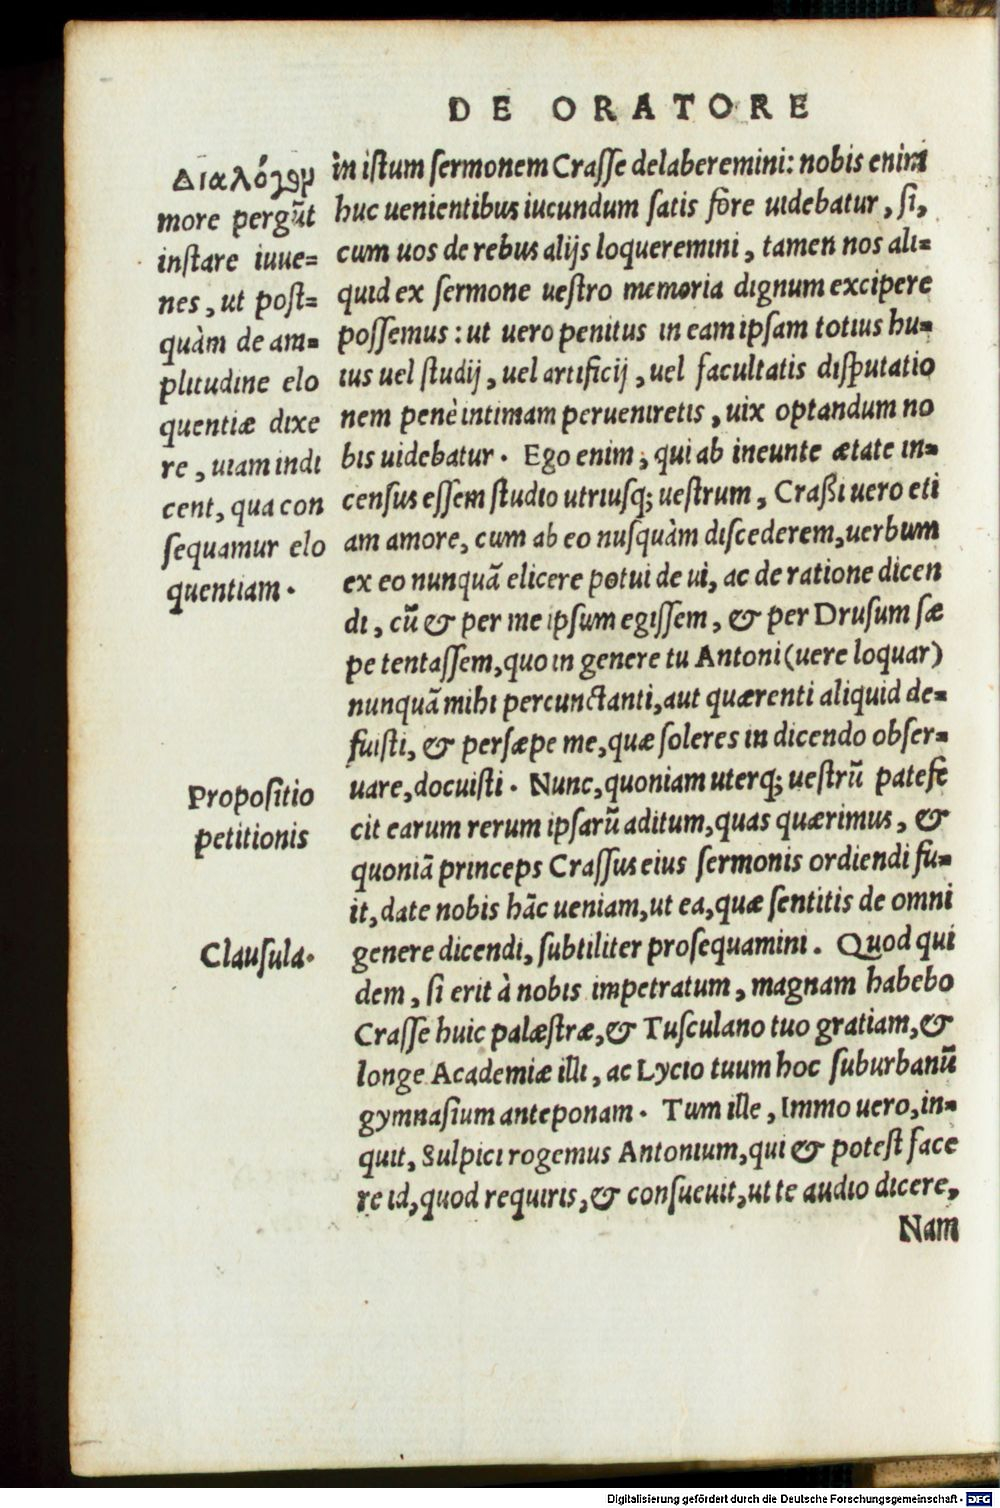 DE ORATORE
Διαλόγων
more pergūt
instare iuue=
nes, ut post=
quàm de am=
plitudine elo
quentiæ dixe
re, uiam indi
cent, qua con
sequamur elo
quentiam.
Propositio
petitionis
Clausula.
in istum sermonem Crasse delaberemini: nobis enim
huc uenientibus iucundum satis fore uidebatur, si,
cum uos de rebus alijs loqueremini, tamen nos ali=
quid ex sermone uestro memoria dignum excipere
possemus: ut uero penitus in eam ipsam totius hu=
ius uel studij, uel artificij, uel facultatis disputatio
nem penè intimam perueniretis, uix optandum no
bis uidebatur. Ego enim, qui ab ineunte ætate in=
census essem studio utriusq; uestrum, Craßi uero eti
am amore, cum ab eo nusquàm discederem, uerbum
ex eo nunquā elicere potui de ui, ac de ratione dicen
di, cū & per me ipsum egissem, & per Drusum sæ
pe tentassem, quo in genere tu Antoni (uere loquar)
nunquā mihi percunctanti, aut quærenti aliquid de=
fuisti, & persæpe me, quæ soleres in dicendo obser=
uare, docuisti. Nunc, quoniam uterq; uestrū patefe
cit earum rerum ipsarū aditum, quas quærimus, &
quoniā princeps Crassus eius sermonis ordiendi fu=
it, date nobis hāc ueniam, ut ea, quæ sentitis de omni
genere dicendi, subtiliter prosequamini. Quod qui
dem, si erit à nobis impetratum, magnam habebo
Crasse huic palæstræ, & Tusculano tuo gratiam, &
longe Academiæ illi, ac Lycio tuum hoc suburbanū
gymnasium anteponam. Tum ille, Immo uero, in=
quit, Sulpici rogemus Antonium, qui & potest face
re id, quod requiris, & consueuit, ut te audio dicere,
Nam
Digitalisierung gefördert durch die Deutsche Forschungsgemeinschaft - DFG